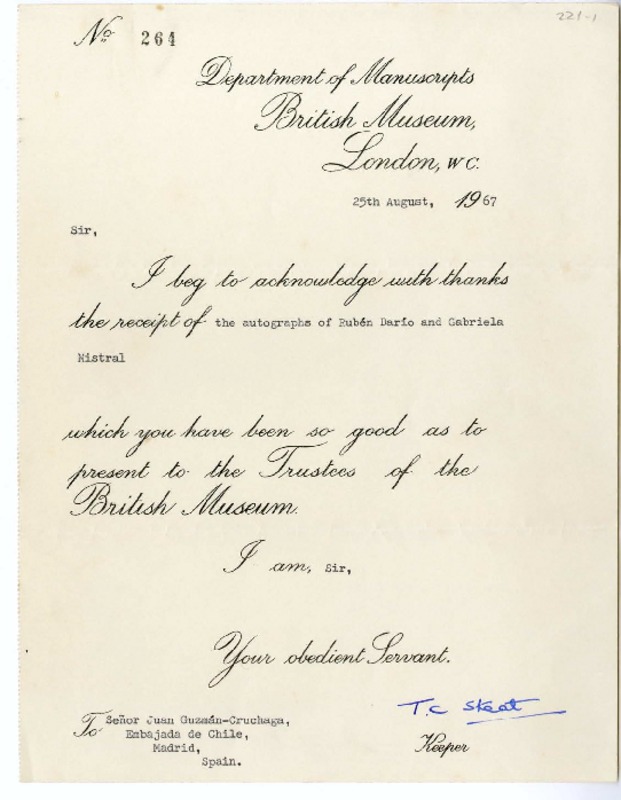 221-1
Nº 264
Department of Manuscripts
British Museum,
London, W C.
25th August, 1967
Sir,
I beg to acknowledge with thanks
the receipt of the autographs of Rubén Darío and Gabriela
Mistral
which you have been so good as to
present to the Trustees of the
British Museum.
I am, Sir,
Your obedient Servant.
T.C Skeat
To Señor Juan Guzmán-Cruchaga,
Embajada de Chile,
Madrid,
Spain.
Keeper